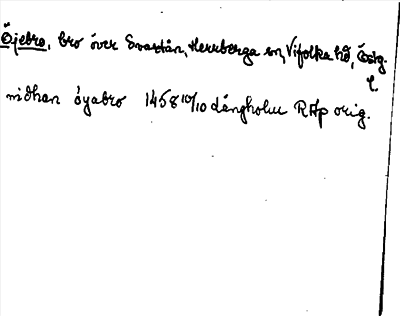 Öjebro, bro över Svartån, Herrberga sn, Vifolka hd, Östg.
nidhan öyabro 1458 10/10 Långholm RAp orig.